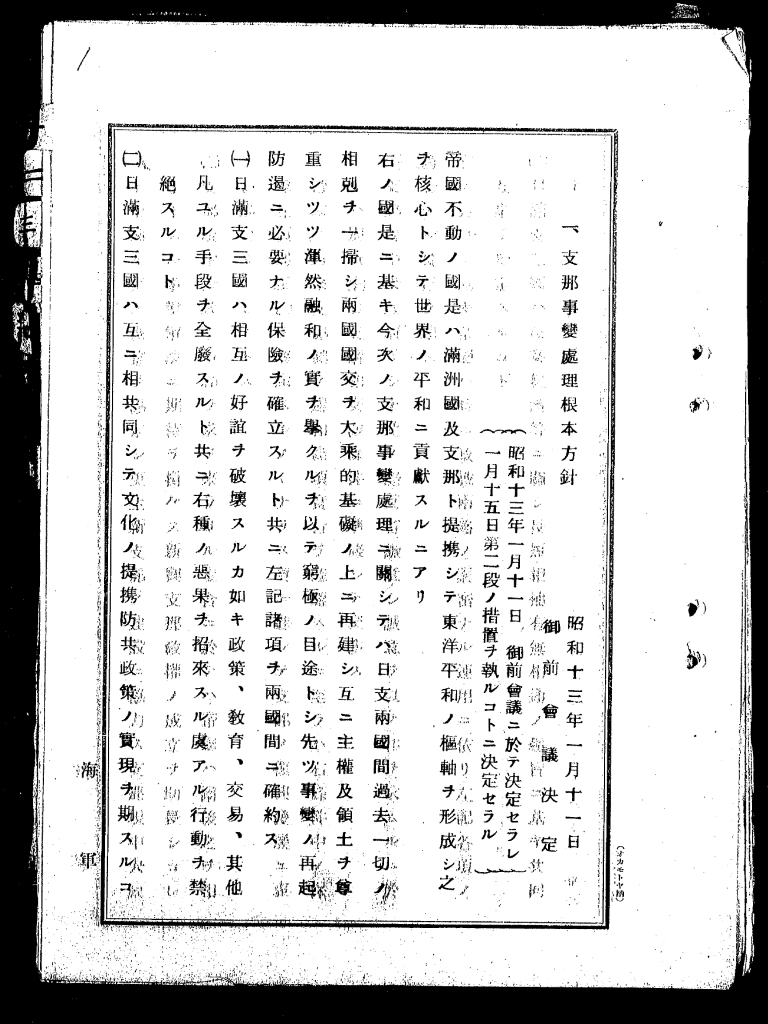 一、支那事變處理根本方針
昭和十三年一月十一日
御前會議決定
昭和十三年一月十一日、御前會議ニ於テ決定セラレ
一月十五日第二段ノ措置ヲ執ルコトニ決定セラル
帝國不動ノ國是ハ滿洲國及支那ト提携シテ東洋平和ノ樞軸ヲ形成シ之
ヲ核心トシテ世界ノ平和ニ貢獻スルニアリ
右ノ國是ニ基キ今次ノ支那事變處理ニ關シテハ日支兩國間過去一切ノ
相剋ヲ一掃シ兩國國交ヲ大乘的基礎ノ上ニ再建シ互ニ主權及領土ヲ尊
重シツツ渾然融和ノ實ヲ擧クルヲ以テ窮極ノ目途トシ先ツ事變ノ再起
防遏ニ必要ナル保險ヲ確立スルト共ニ左記諸項ヲ兩國間ニ確約ス
㈠日滿支三國ハ相互ノ好誼ヲ破壞スルカ如キ政策、敎育、交易、其他
凡ユル手段ヲ全廢スルト共ニ右種ノ惡果ヲ招來スル虞アル行動ヲ禁
絶スルコト
㈡日滿支三國ハ互ニ相共同シテ文化ノ提携防共政策ノ實現ヲ期スルコ
海軍
(オカモトヤ納)